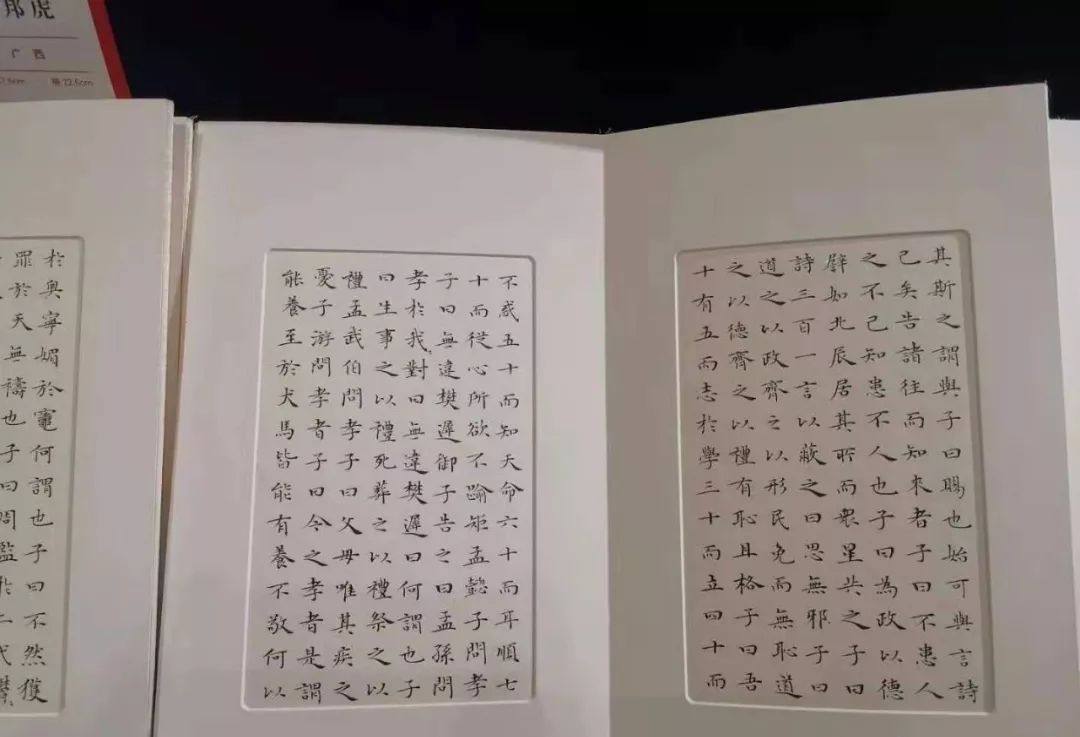 邦虎
广西
横22.6cm
其斯之謂與子曰賜也始可與言詩
已矣告諸往而知來者子曰不患人
之不己知患不人也子曰為政以德
辟如北辰居其所而衆星共之子曰
詩三百一言以蔽之曰思無邪子曰
道之以政齊之以形民免而無恥道
之以德齊之以禮有恥且格子曰吾
十有五而志於學三十而立四十而
不惑五十而知天命六十而耳順七
十而從心所欲不踰矩孟懿子問孝
子曰無違樊遲御子告之曰孟孫問
孝於我對曰無違樊遲曰何謂也子
曰生事之以禮死葬之以禮祭之以
禮孟武伯問孝子曰父母唯其疾之
憂子游問孝者子曰今之孝者是謂
能養至於犬馬皆能有養不敬何以
於奧寧媚於竈何謂也子曰不然獲
罪於天無禱也子曰周監於二代